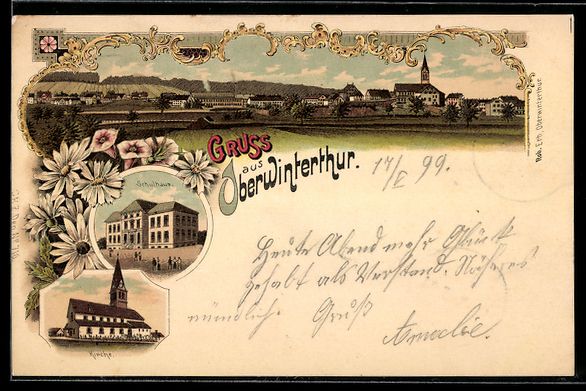 GRUSS
aus
Oberwinterthur.
Rob. Erb, Oberwinterthur
17/I 99.
Schulhaus.
Heute Abend mehr Glück
gehabt als Verstand. Näheres
mündlich. Gruß
Amelie.
Kirche.